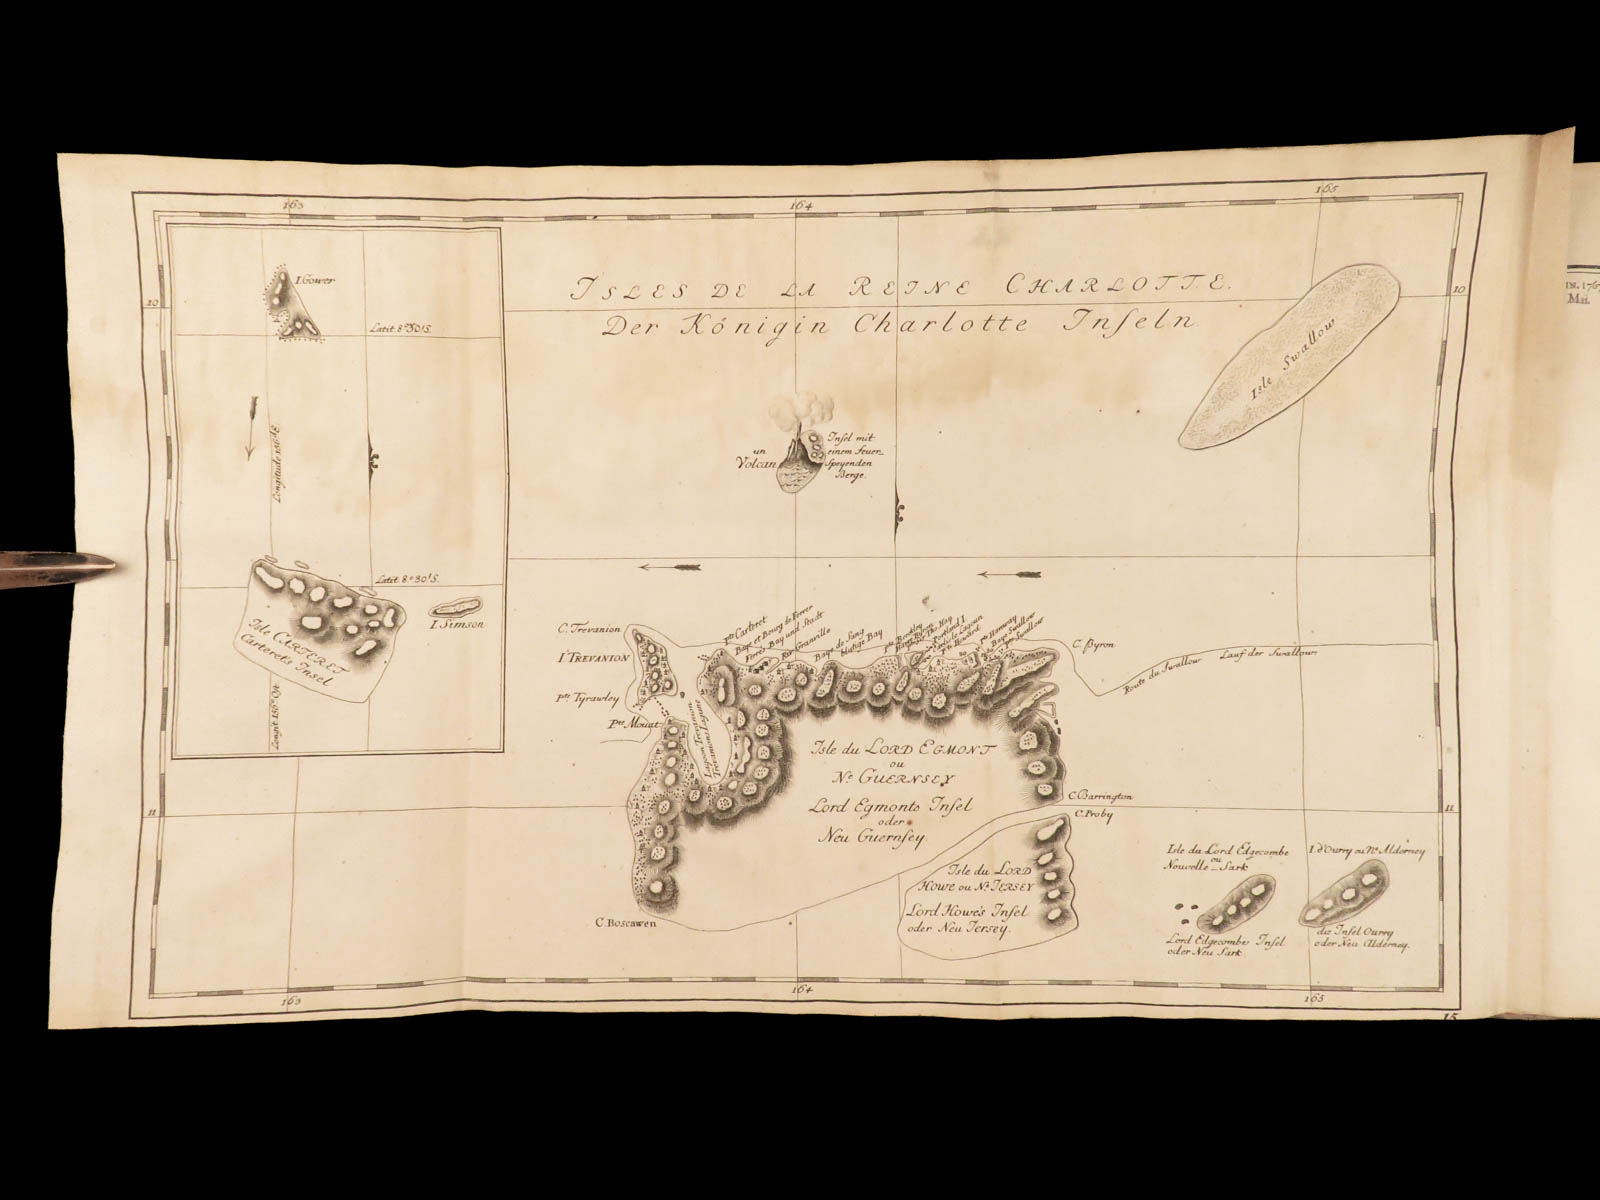 163
164
165
ISLES DE LA REINE CHARLOTTE.
Der Königin Charlotte Inseln
I. Gower
Latit. 8°30'S.
Longitude 156°d'E
Latit. 8°30'S.
I. Simson
Isle CARTERET
Carterets Insel
Longit. 156° Ost
10
10
11
11
Isle Swallow
un
Volcan
Insel mit
einem feuer_
Speyenden
Berge.
C. Trevanion
Iˡ TREVANION
Pᵗᵉ Tyrawley
Pᵗᵉ Mouat
Lagon Trevanion
Trevanions Lagune
Pᵗᵉ Carteret
Baye et Bourg de Ferrer
Ferrers Bay und Stadt
Riv. Granville
Baye de Sang
blutige Bay
Byron
Portland I
Lagoun
Howard
Pᵗᵉ Hanway
Baye Swallow
Swallow
C. Byron
Route du Swallow
Lauf der Swallow
Isle du LORD EGMONT
ou
Nᵉ GUERNSEY
Lord Egmonts Insel
oder
Neu Guernsey.
C. Barrington
C. Proby
C. Boscawen
Isle du LORD
HOWE ou Nᵉ JERSEY
Lord Howe's Insel
oder Neu Jersey.
Isle du Lord Edgecombe
ou
Nouvelle_Sark
Lord Edgecombe Insel
oder Neu Sark.
I. d'Ourry ou Nᵉ Alderney
die Insel Ourry
oder Neu Alderney.
163
164
165
15
IN. 1767
Mii.